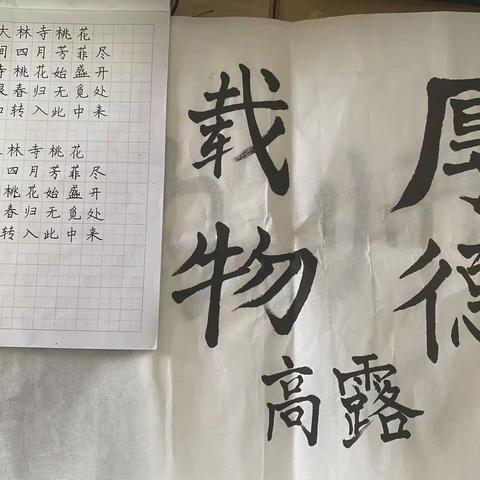 大林寺桃花
间四月芳菲尽
寺桃花始盛开
恨春归无觅处
转入此中来
林寺桃花
四月芳菲尽
桃花始盛开
春归无觅处
转入此中来
厚德
载物
高露